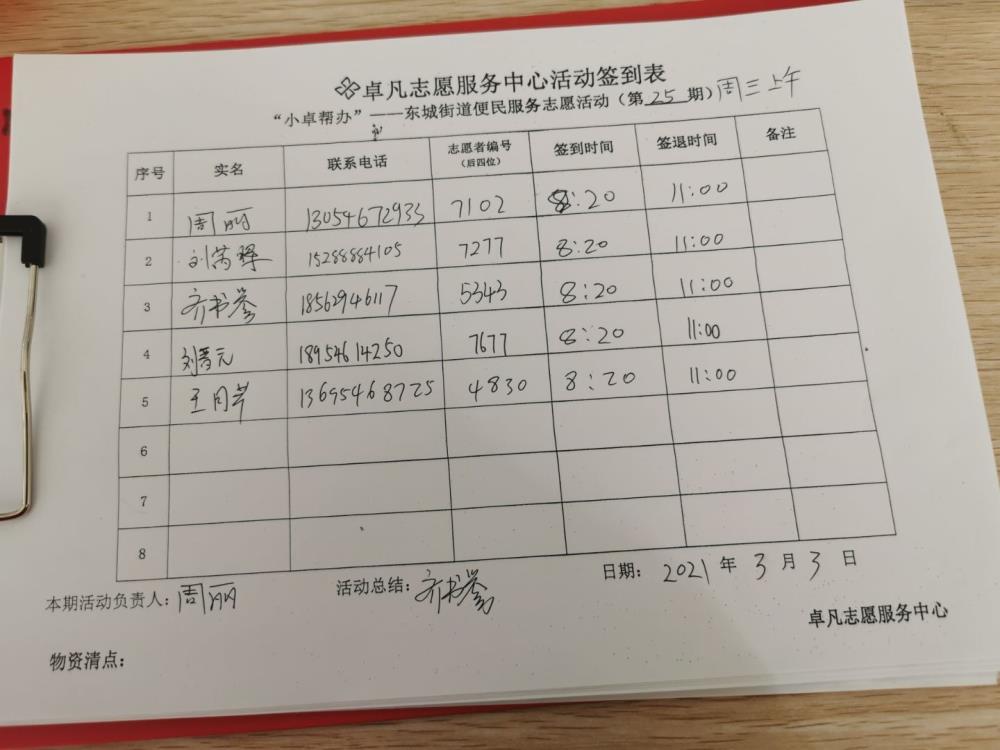 卓凡志愿服务中心活动签到表
“小卓帮办”——东城街道便民服务志愿活动（第 25 期） 周三上午
序号 实名 联系电话 志愿者编号（后四位） 签到时间 签退时间 备注
1 周丽 13054672933 7102 8:20 11:00
2 刘 15288884105 7277 8:20 11:00
3 齐书誉 18562946117 5343 8:20 11:00
4 刘晋元 18954614250 7677 8:20 11:00
5 王 13695468725 4830 8:20 11:00
6
7
8
本期活动负责人：周丽 活动总结：齐书誉 日期： 2021 年 3 月 3 日
卓凡志愿服务中心
物资清点：